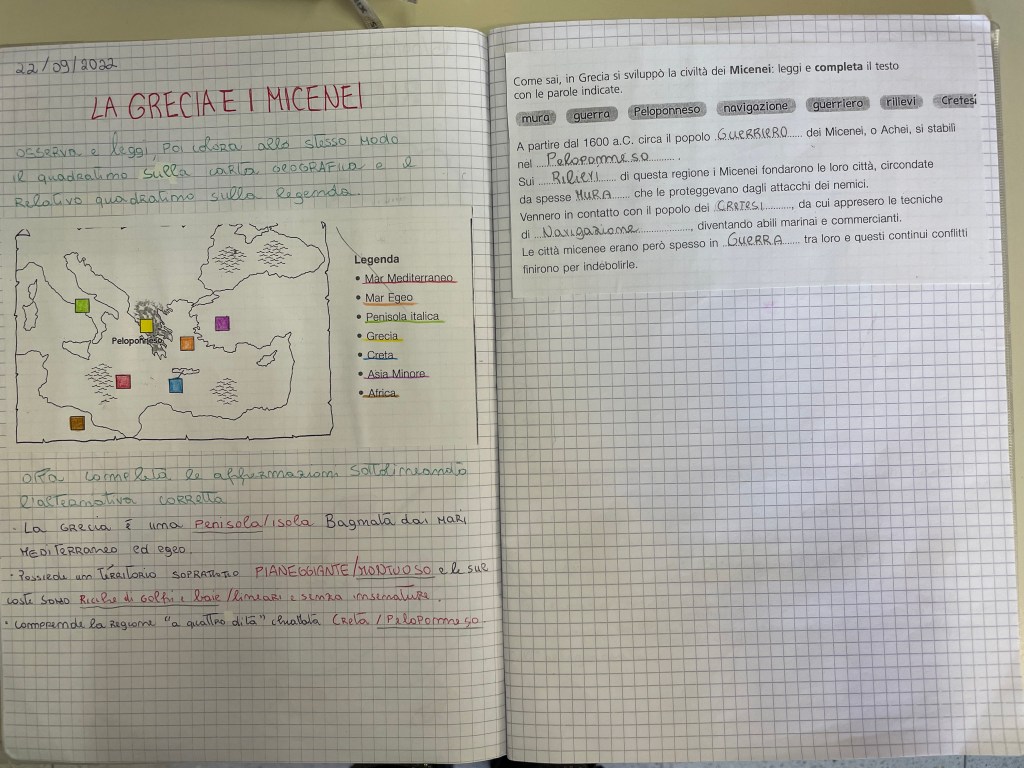 22/09/2022
LA GRECIA E I MICENEI
osserva e leggi, poi colora allo stesso modo
il quadratino sulla carta geografica e il
relativo quadratino sulla legenda.
Peloponneso
Legenda
• Mar Mediterraneo
• Mar Egeo
• Penisola italica
• Grecia
• Creta
• Asia Minore
• Africa
ora completa le affermazioni sottolineando
l'alternativa corretta
· La GRECIA è una Penisola/isola Bagnata dai MARI
MEDITERRANEO ed egeo.
· Possiede un TERRITORIO SOPRATTUTTO PIANEGGIANTE/MONTUOSO e le sue
coste sono Ricche di Golfi e baie/lineari e senza insenature.
· comprende la Regione "a quattro dita" chiamata Creta/Peloponneso
Come sai, in Grecia si sviluppò la civiltà dei Micenei: leggi e completa il testo
con le parole indicate.
mura guerra Peloponneso navigazione guerriero rilievi Cretesi
A partire dal 1600 a.C. circa il popolo GUERRIERO dei Micenei, o Achei, si stabilì
nel Peloponneso.
Sui Rilievi di questa regione i Micenei fondarono le loro città, circondate
da spesse MURA che le proteggevano dagli attacchi dei nemici.
Vennero in contatto con il popolo dei CRETESI, da cui appresero le tecniche
di Navigazione, diventando abili marinai e commercianti.
Le città micenee erano però spesso in GUERRA tra loro e questi continui conflitti
finirono per indebolirle.